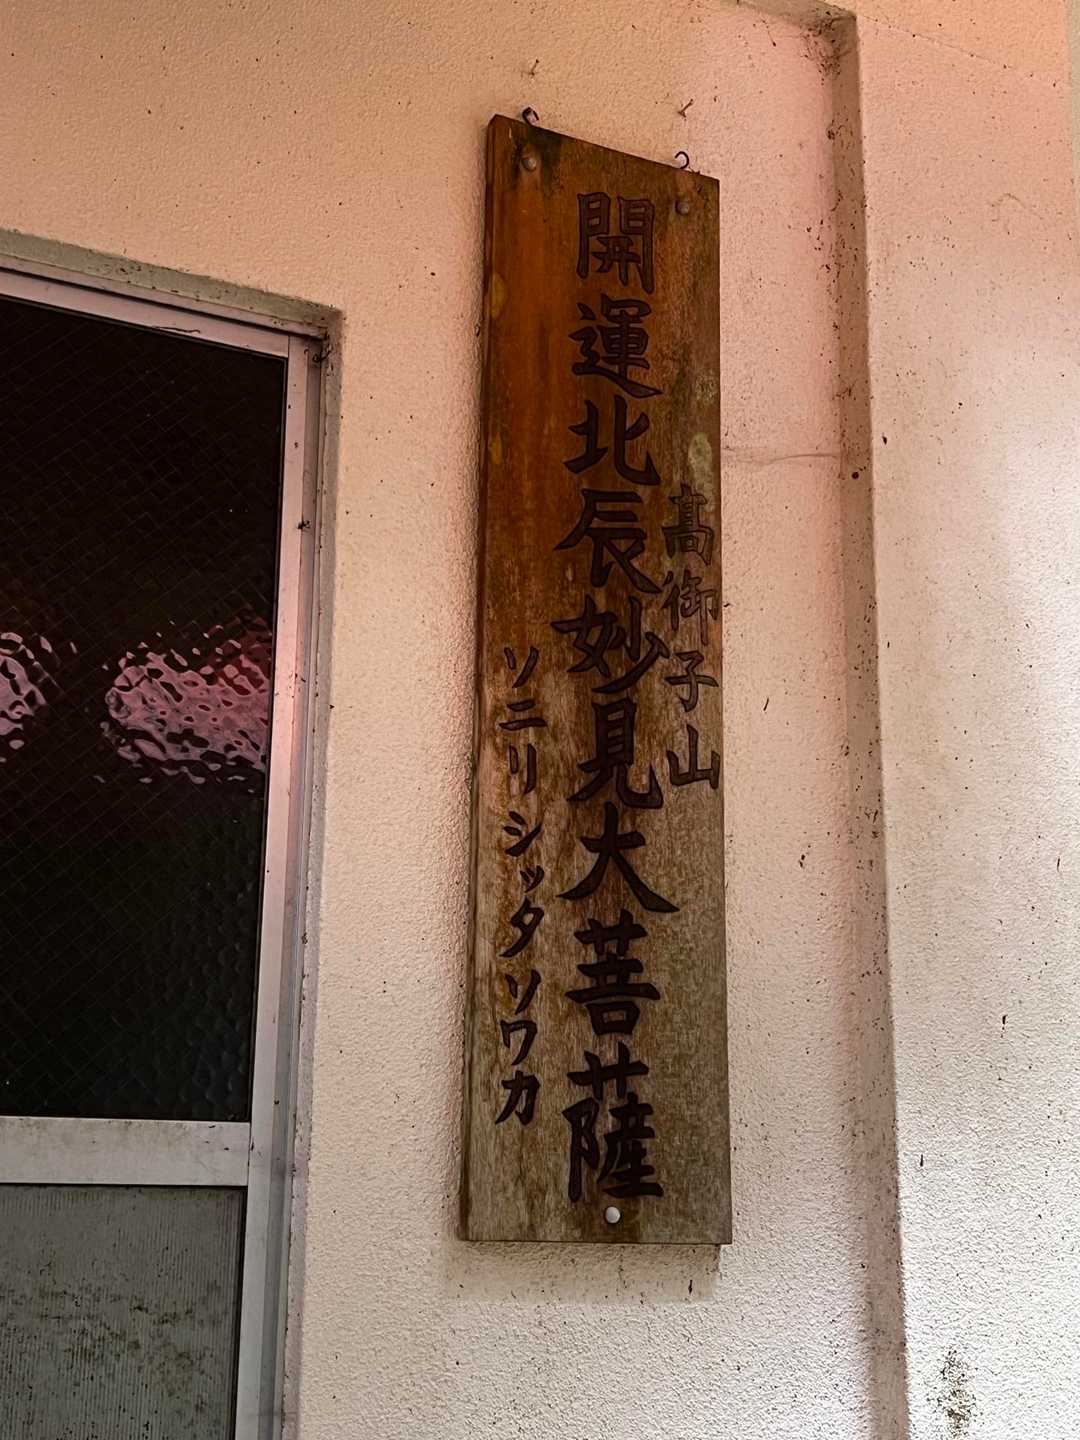 髙御子山
開運北辰妙見大菩薩
ソニリシッタソワカ